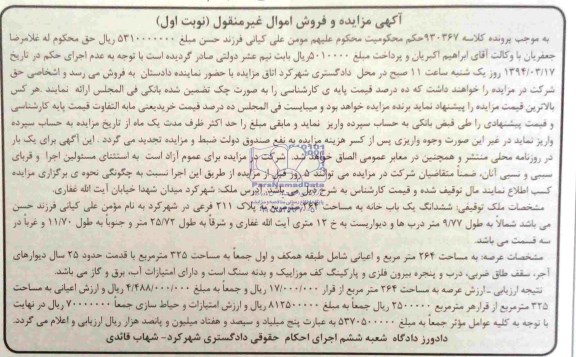 آگهی مزایده و فروش اموال غیرمنقول (نوبت اول)
به موجب پرونده کلاسه ۹۳۰۳۶۷حکم محکومیت محکوم علیهم مومن علی کیانی فرزند حسن مبلغ ۵۳۱۰۰۰۰۰۰۰ ریال حق محکوم له غلامرضا
جعفریان با وکالت آقای ابراهیم اکبریان و پرداخت مبلغ ۵۰۱۰۰۰۰ریال بابت نیم عشر دولتی صادر گردیده است با توجه به عدم اجرای حکم در تاریخ
۱۳۹۴/۰۳/۱۷ روز یک شنبه ساعت ۱۱ صبح در محل دادگستری شهرکرد اتاق مزایده با حضور نماینده دادستان به فروش می رسد و اشخاصی حق
شرکت در مزایده را خواهند داشت که ده درصد قیمت پایه ی کارشناسی را به صورت چک تضمین شده بانکی فی المجلس ارائه نمایند .هر کس
بالاترین قیمت مزایده را پیشنهاد نماید برنده مزایده خواهد بود و میبایست فی المجلس ده درصد قیمت خریدیعنی مابه التفاوت قیمت پایه کارشناسی
و قیمت پیشنهادی را طی قبض بانکی به حساب سپرده واریز نماید و مابقی مبلغ را حد اکثر ظرف مدت یک ماه از تاریخ مزایده به حساب سپرده
واریز نماید در غیر این صورت وجوه واریزی پس از کسر هزینه مزایده به نفع صندوق دولت ضبط و مزایده تجدید می گردد . این آگهی برای یک بار
در روزنامه محلی منتشر و همچنین در معابر عمومی الصاق خواهد شد. شرکت در مزایده برای عموم آزاد است به استثنای مسئولین اجرا و قربای
سببی و نسبی آنان، ضمناً متقاضیان شرکت در مزایده می توانند ۵ روز قبل از مزایده از طریق این اجرا نسبت به چگونگی نحوه ی برگزاری مزایده
کسب اطلاع نمایند مال توقیف شده و قیمت کارشناس به شرح ذیل می باشد. آدرس ملک: شهرکرد میدان شهدا خیابان آیت الله غفاری.
مشخصات ملک توقیفی: ششدانگ یک باب خانه به مساحت متر مربع به پلاک ۲۱۱ فرعی در شهرکرد به نام مؤمن علی کیانی فرزند حسن
می باشد شمالاً به طول ۹/۷۷ متر درب ها و دیواریست به خ ۱۲ متری آیت الله غفاری و شرقاً به طول ۲۵/۷۲ متر و جنوباً به طول ۱۱/۷۰ و غرباً در
سه قسمت می باشد.
مشخصات عرصه: به مساحت ۲۶۴ متر مربع و اعیانی شامل طبقه همکف و اول جمعاً به مساحت ۳۲۵ مترمربع با قدمت حدود ۲۵ سال دیوارهای
آجر، سقف طاق ضربی، درب و پنجره بیرون فلزی و پارکینگ کف موزاییک و بدنه سنگ است و دارای امتیازات آب، برق و گاز می باشد.
نتیجه ارزیابی :ـ ارزش عرصه به مساحت ۲۶۴ متر مربع از قرار ۱۷/۰۰۰/۰۰۰ ریال و جمعاً به مبلغ ۴/۴۸۸/۰۰۰/۰۰۰ ریال و ارزش اعیانی به مساحت
۳۲۵ مترمربع از قرارهر مترمربع ۲۵۰۰۰۰۰ ریال جمعاً به مبلغ ۸۱۲۵۰۰۰۰۰ ریال و ارزش امتیازات و حیاط سازی جمعاً ۷۰۰۰۰۰۰۰ ریال در نهایت
با توجه به کلیه عوامل مؤثر جمعاً به مبلغ ۵۳۷۰۵۰۰۰۰۰ به عبارت پنج میلیاد و سیصد و هفتاد میلیون و پانصد هزار ریال ارزیابی و اعلام می گردد.
دادورز دادگاه شعبه ششم اجرای احکام حقوقی دادگستری شهرکرد- شهاب قائدی
ParsNamadData